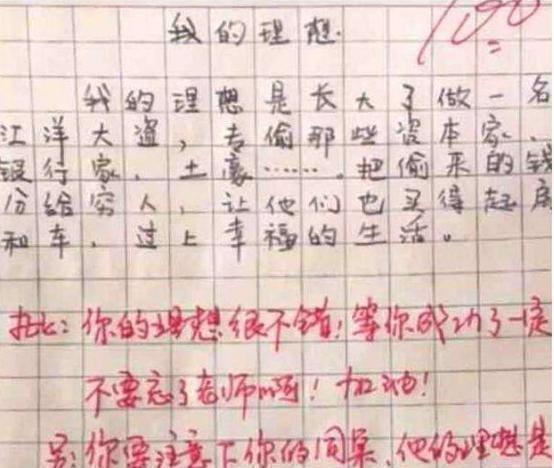 我的理想.
100
我的理想是长大了做一名
江洋大盗，专偷那些资本家、
银行家、土豪……把偷来的钱
分给穷人，让他们也买得起房
和车，过上幸福的生活。
批比：你的理想很不错！等你成功了一定
不要忘了老师啊！加油！
另：你要注意下你的同桌，他的理想是